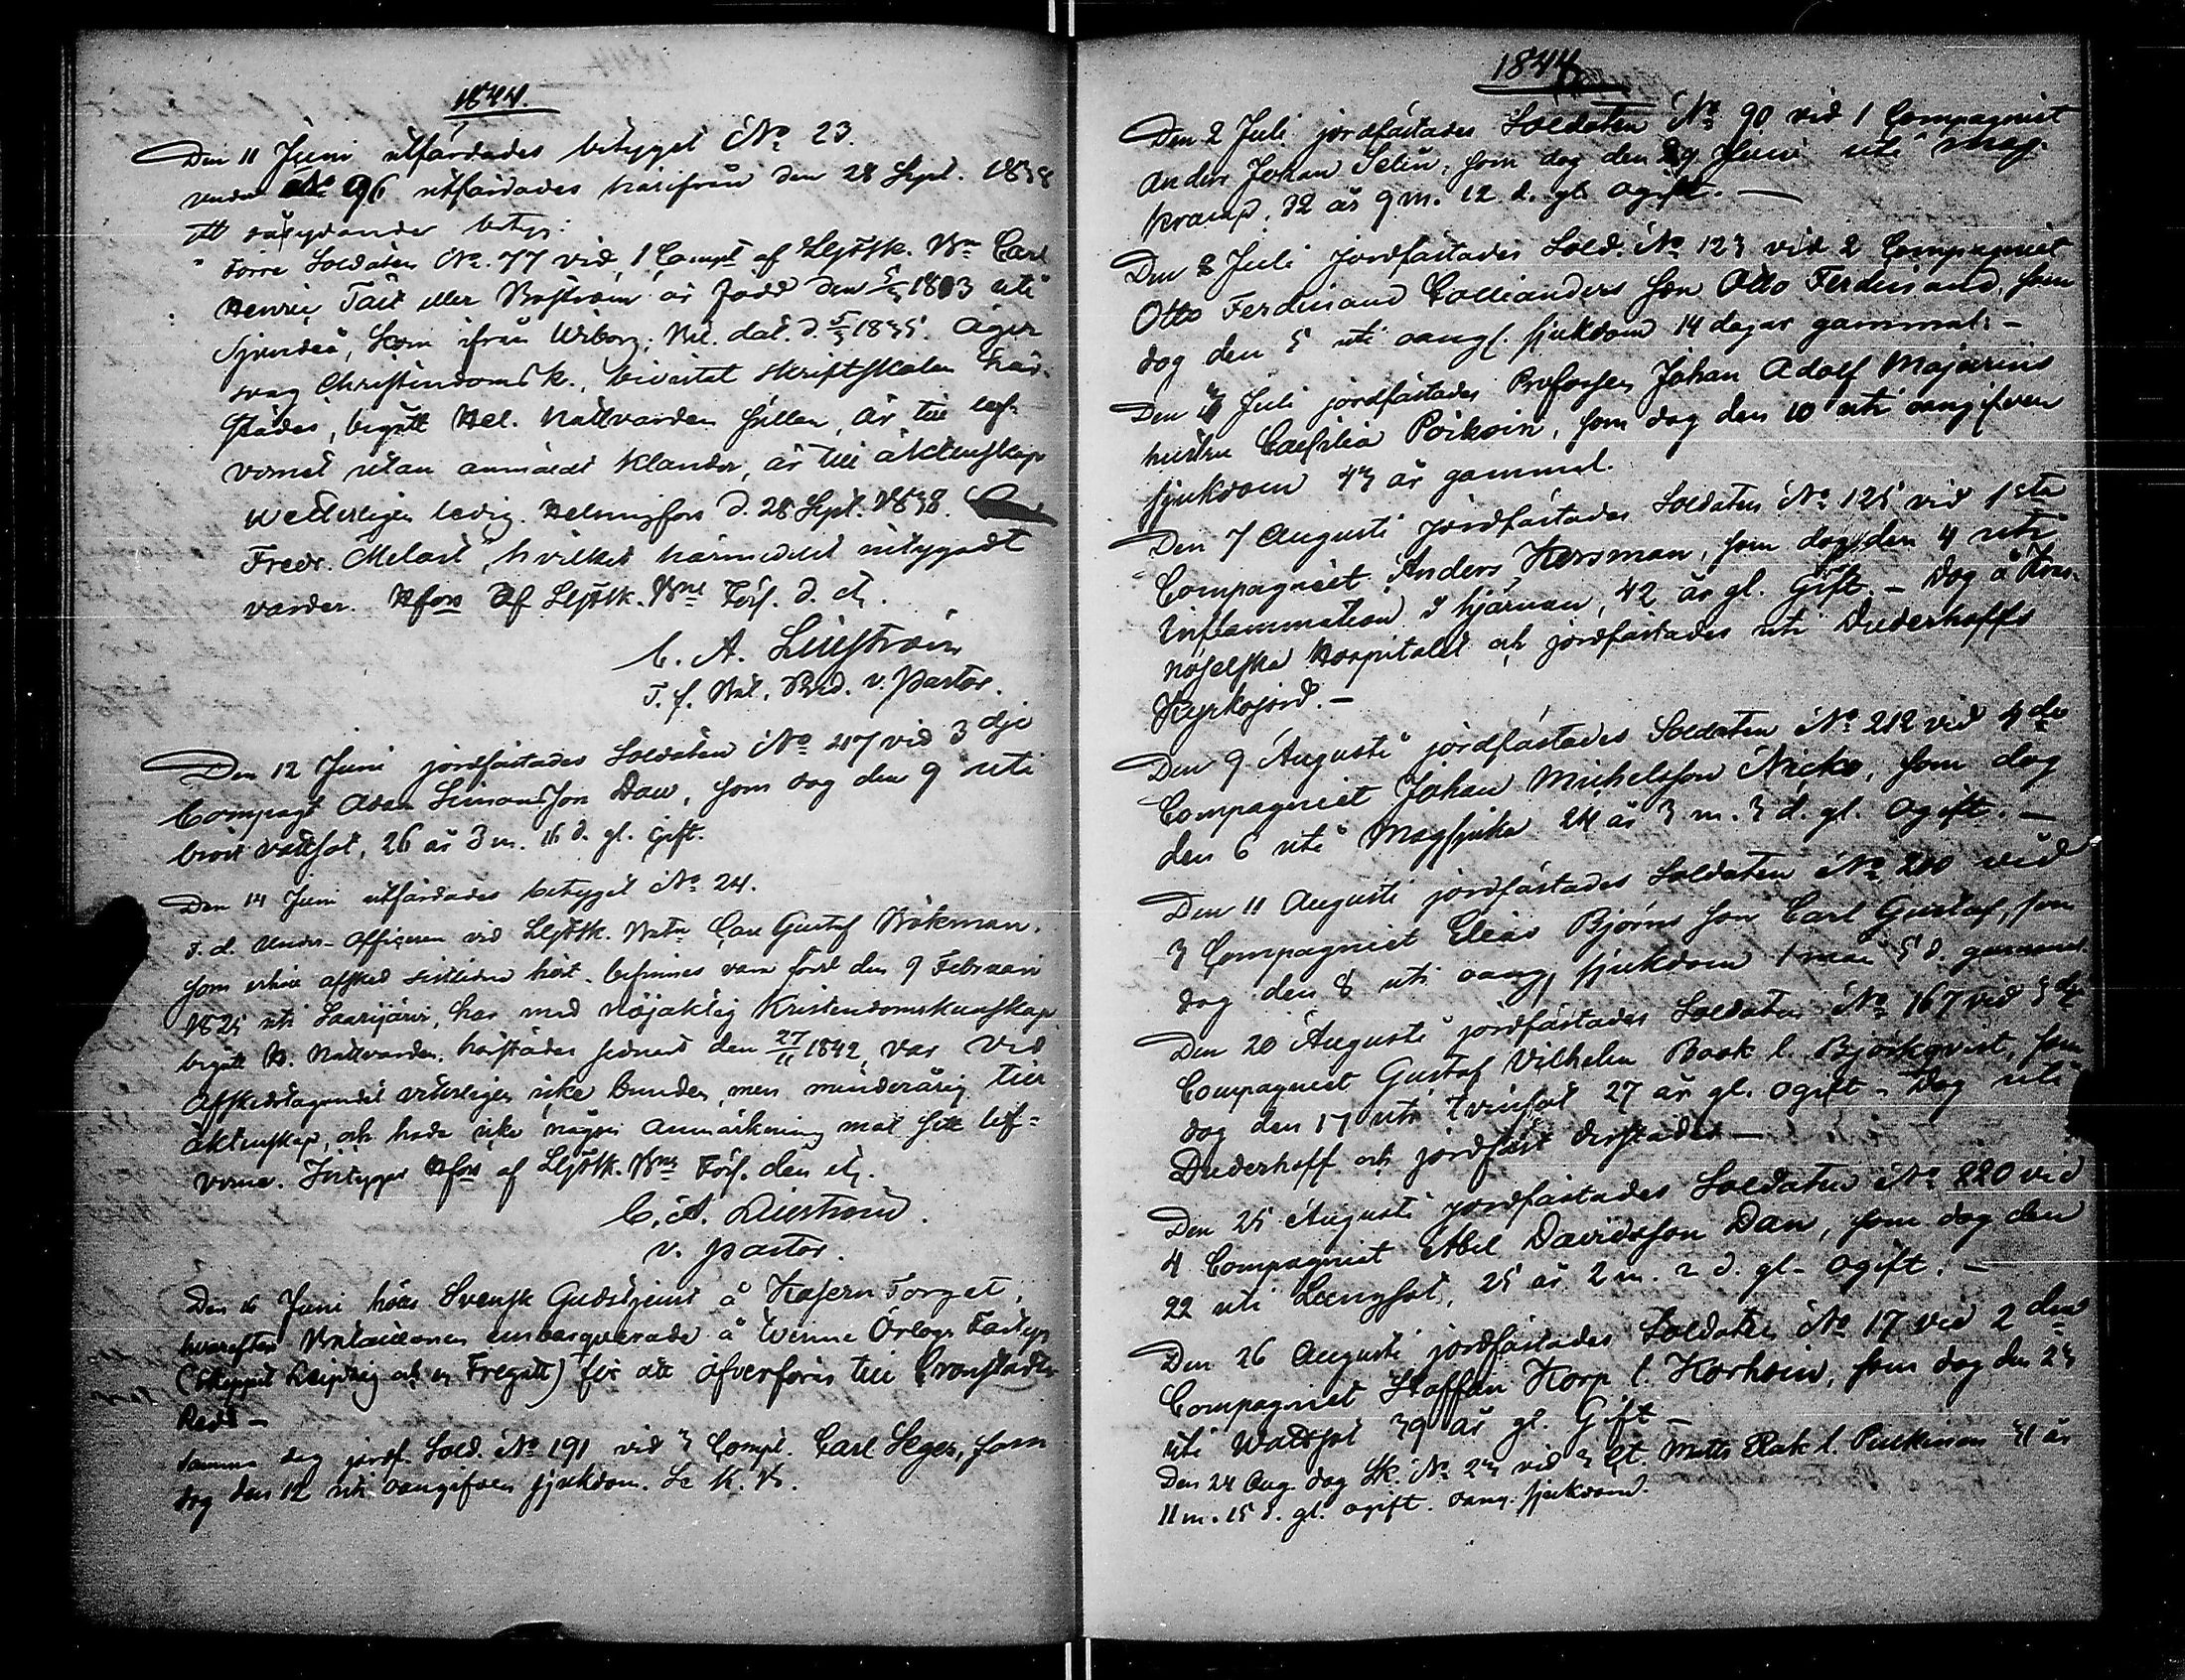 1844.
Den 11 Juni utfärdades betyget No 23.
under No 96 utfärdades härifrån den 28 Sept. 1838
ett sålydande betyg:
"Förre Soldaten No. 77 vid 1 Compt af Lifgsk. Bn Carl
Henric Tait eller Boström är född den 5/3 1803 uti
Sjundeå, kom ifrån Wiborg, Bet. dat. d. 5/3 1835. äger
svag Christendomsk., bevistat skriftskolan här-
städes, begått Hel. Nattvarden sällan, är till lef-
vernet utan anmäldt klander, är till äktenskap
wetterligen ledig. Helsingfors d. 28 Sept. 1838.
Fredr. Melart", hvilket härmedelst intygadt
varder. Hfors Lif Bns Förs. d.
C. A. Liliström
T. f. Bat. Pred. v. pastor.
Den 12 Juni jordfästades Soldaten No 217 vid 3dje
Compagt Adam Simonsson Daw, som dog den 9 uti
bröst vattsot, 26 år 3 m. 16 d. gl. gift.
Den 14 Juni utfärdades betyget No 24.
F. d. Under-Officeren vid Batn Carl Gustaf Bökman,
som erhöll afsked sistliden höst, befinnes vara född den 9 Februari
1825 uti Saarijärvi, har med nöjaktig Kristendomskunskap
begått H. Nattvarden, härstädes sednast den 27/11 1842, var vid
afskedstagandet vitterligen icke bunden, men minderårig till
äktenskap, och hade icke någon anmärkning mot sitt lef-
verne. Intygar Hfors af Bns Förs. den
C. A. Liliström.
v. pastor.
Den 16 Juni hölls Svensk Gudstjenst å Kasern Torget,
hvarefter Bataillonen embarquerade å tvenne Örlogs Fartyg
(Skeppet Leipzig och en Fregatt) för att öfverföras till Cronstadts
Redd -
Samma dag jordf. Sold. No 191 vid 3 Compt. Carl Seger, som
dog den 12 uti oangifven sjukdom. Se K. B.
1844
Den 2 Juli jordfästades Soldaten No 90 vid 1 Compagniet
Anders Johan Selin, som dog den 29 Juni uti mag-
kramp. 32 år 9 m. 12 d. gl. ogift. —
Den 8 Juli jordfästades Sold. No 123 vid 2 Compagniet
Otto Ferdinand Collianders son Otto Ferdinand, som
dog den 5 uti oangf. sjukdom 14 dagar gammal. -
Den Juli jordfästades Profossen Johan Adolf Majurins
hustru Caesilia Poikoin, som dog den 10 uti oangifven
sjukdom 43 år gammal.
Den 7 Augusti jordfästades Soldaten No 125 vid 1sta
Compagniet Anders Hersman, som dog den 4 uti
Inflammation i hjärnan, 42 år gl. Gift. - Dog å Kras-
nojelska Hospitalet och jordfästades uti Duderhoffs
Kyrkojord. -
Den 9 Augusti jordfästades Soldaten No 212 vid 4de
Compagniet Johan Michelsson Nicko, som dog
den 6 uti Magsjuka 24 år 3 m. 3 d. gl. Ogift. —
Den 11 Augusti jordfästades Soldaten No 200 vid
3 Compagniet Elias Björns son Carl Gustaf, som
dog den 8 uti oang. sjukdom 1 mån 5 d. gammal.
Den 20 Augusti jordfästades Soldaten No 167 vid 3dje
Compagniet Gustaf Vilhelm Book l. Björkqvist, som
dog den 17 uti tvinsot 27 år gl. ogift - Dog uti
Duderhoff och jordfäst derstädes —
Den 25 Augusti jordfästades Soldaten No 220 vid
4 Compagniet Abel Davidsson Dan, som dog den
22 uti Lungsot, 25 år 2 m. 2 d. gl. ogift. -
Den 26 Augusti jordfästades Soldaten No 17 vid 2dra
Compagniet Staffan Korp l. Korhoin, som dog den 23
uti Wattsot 39 år gl. Gift —
Den 24 Aug. dog No 23 vid Ct. Matts Rak l. Pulkinen 31 år
11 m. 15 d. gl. ogift. oang. sjukdom.